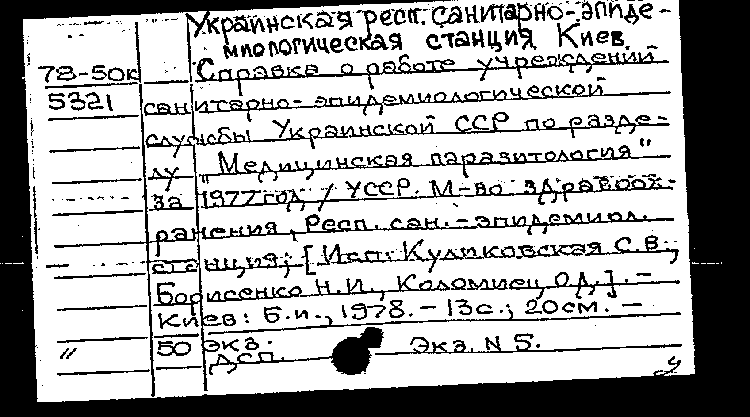 Украинская респ. санитарно-эпиде-
миологическая станция Киев.
78-50к Справка о работе учреждений
5321 санитарно-эпидемиологической
службы Украинской ССР по разде-
лу „Медицинская паразитология"
за 1977 год / УССР. М-во здравоох-
ранения, Респ. сан.-эпидемиол.
станция; [Исп: Куликовская С.В.,
Борисенко Н.И., Коломиец О.Д.]. –
Киев: Б.и., 1978. – 13с.; 20см. –
" 50 экз.
ДСП. Экз. N 5.